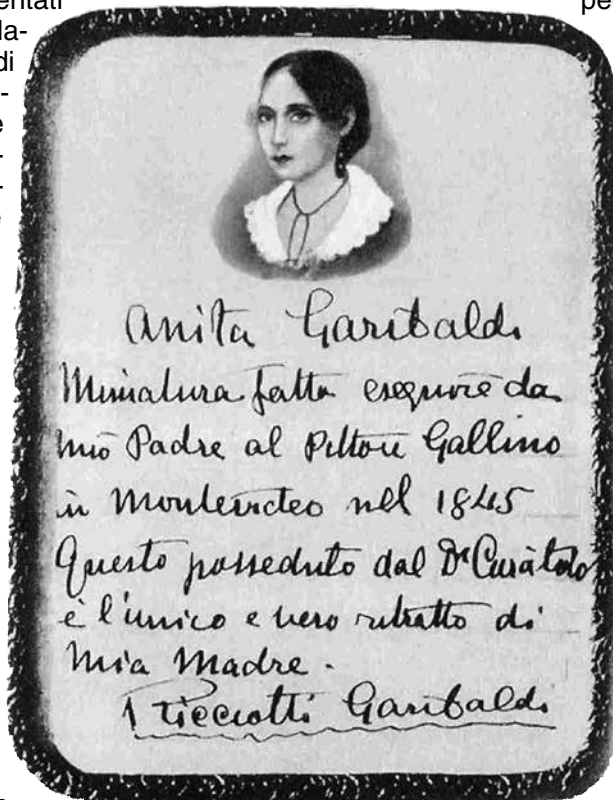 entati
la-
di
-
e
-
-
e
pe
Anita Garibaldi
Miniatura fatta eseguire da
mio Padre al Pittore Gallino
in Montevideo nel 1845
Questo posseduto dal Dr Curàtolo
è l'unico e vero ritratto di
Mia Madre.
Ricciotti Garibaldi